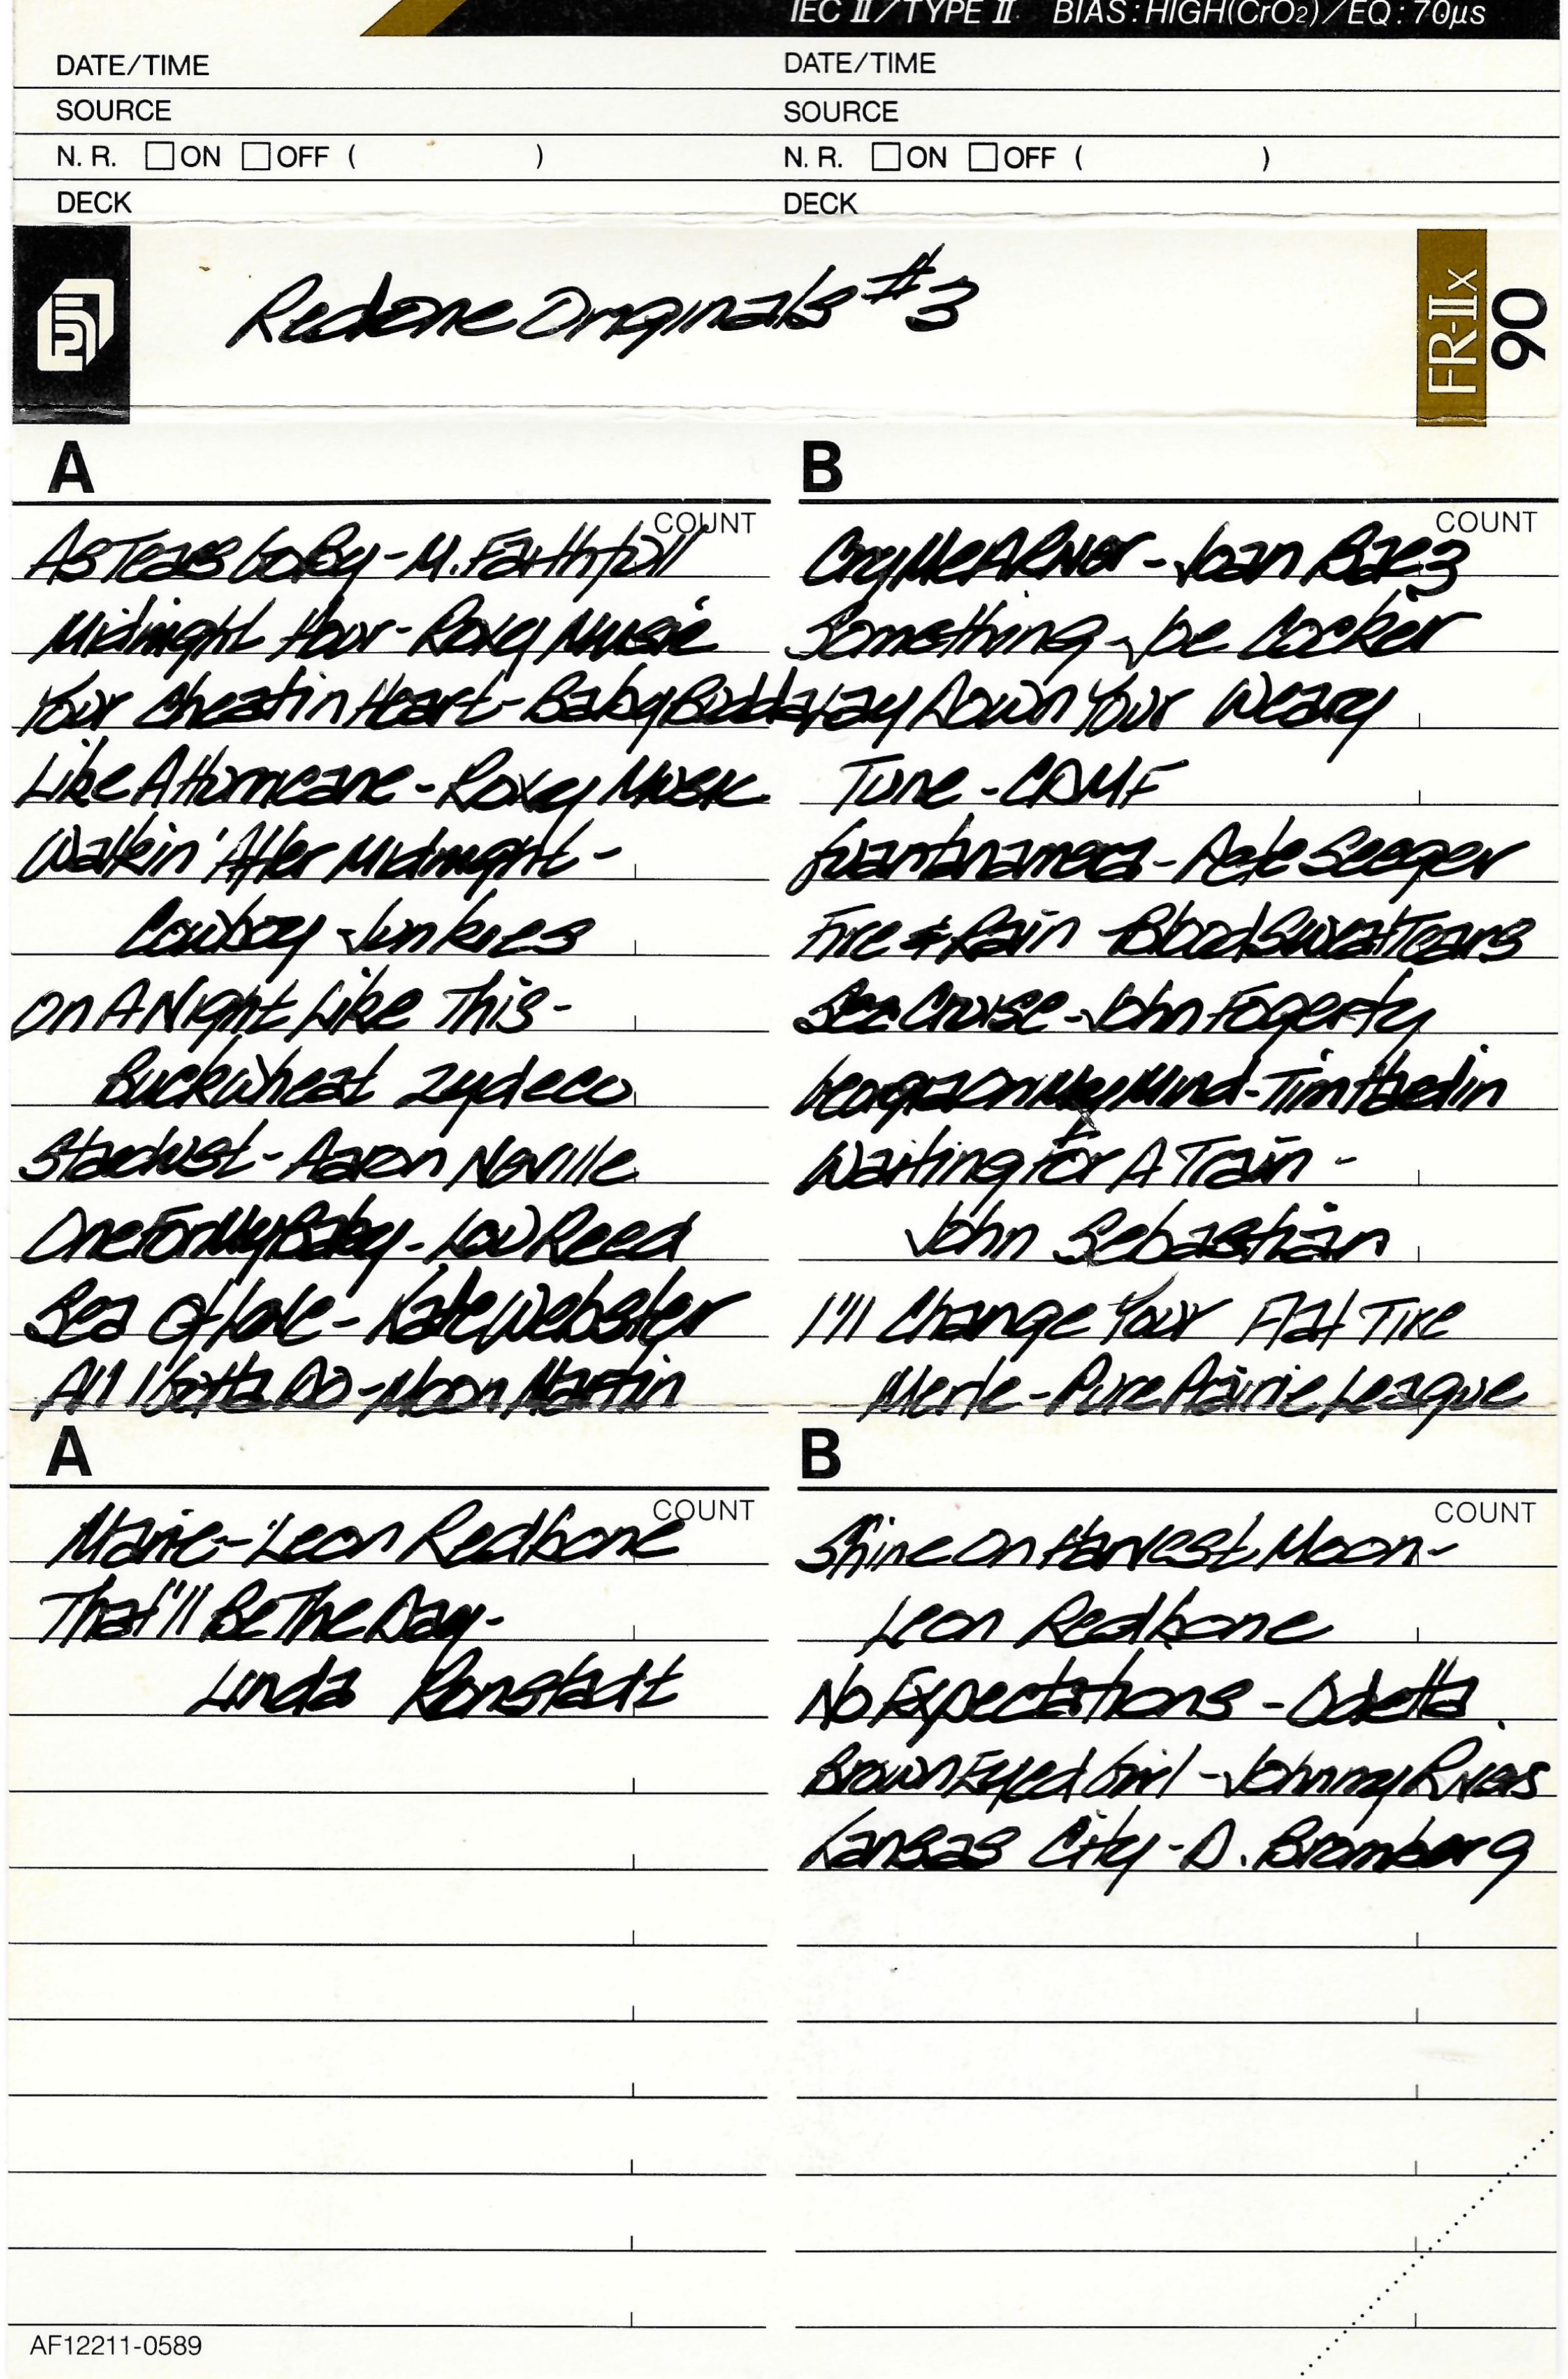 IEC II/TYPE II BIAS:HIGH(CrO2)/EQ:70µs
DATE/TIME
SOURCE
N. R. ON OFF ( )
DECK
DATE/TIME
SOURCE
N. R. ON OFF ( )
DECK
Redone Originals #3
FR-IIx
90
A
COUNT
As Tears Go By - M. Faithfull
Midnight Hour - Roxy Music
Your Cheatin Heart - Baby Budda
Like A Hurricane - Roxy Music
Walkin' After Midnight -
Cowboy Junkies
On A Night Like This -
Buckwheat Zydeco
Stardust - Aaron Neville
One For My Baby - Lou Reed
Sea Of Love - Kate Webster
All I Gotta Do - Moon Martin
B
COUNT
Cry Me A River - Joan Baez
Something - Joe Cocker
Lay Down Your Weary
Tune - CRMF
Guantanamera - Pete Seeger
Fire & Rain - Blood Sweat Tears
Sea Cruise - John Fogerty
Georgia On My Mind - Tim Hardin
Waiting For A Train -
John Sebastian
I'll Change Your Flat Tire
Merle - Pure Prairie League
A
COUNT
Marie - Leon Redbone
That'll Be The Day -
Linda Ronstadt
B
COUNT
Shine On Harvest Moon -
Leon Redbone
No Expectations - Odetta
Brown Eyed Girl - Johnny Rivers
Kansas City - D. Bromberg
AF12211-0589